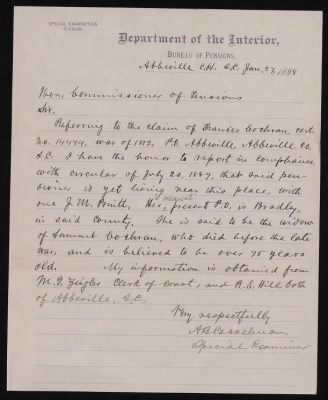 SPECIAL EXAMINATION
DIVISION.
Department of the Interior,
BUREAU OF PENSIONS,
Abbeville C.H. S.C. Jan, 27, 1888.
Hon. Commissioner of Pensions
Sir.
Referring to the claim of Frances Cochran, cert.
no. 14444, war of 1812, P.O. Abbeville, Abbeville Co.
S.C. I have the honor to report in compliance
with circular of July 20, 1887, that said pen-
sioner is yet living near this place, with
one J. M. Britt, Her, present P.O. is Bradley,
nearest
in said County, She is said to be the widow
of Samuel Cochran, who died before the late
war, and is believed to be over 75 years
old. My information is obtained from
M. G. Zeigler Clerk of Court, and R. E. Hill both
of Abbeville, S.C.
Very respectfully
A B Casselman
Special Examiner